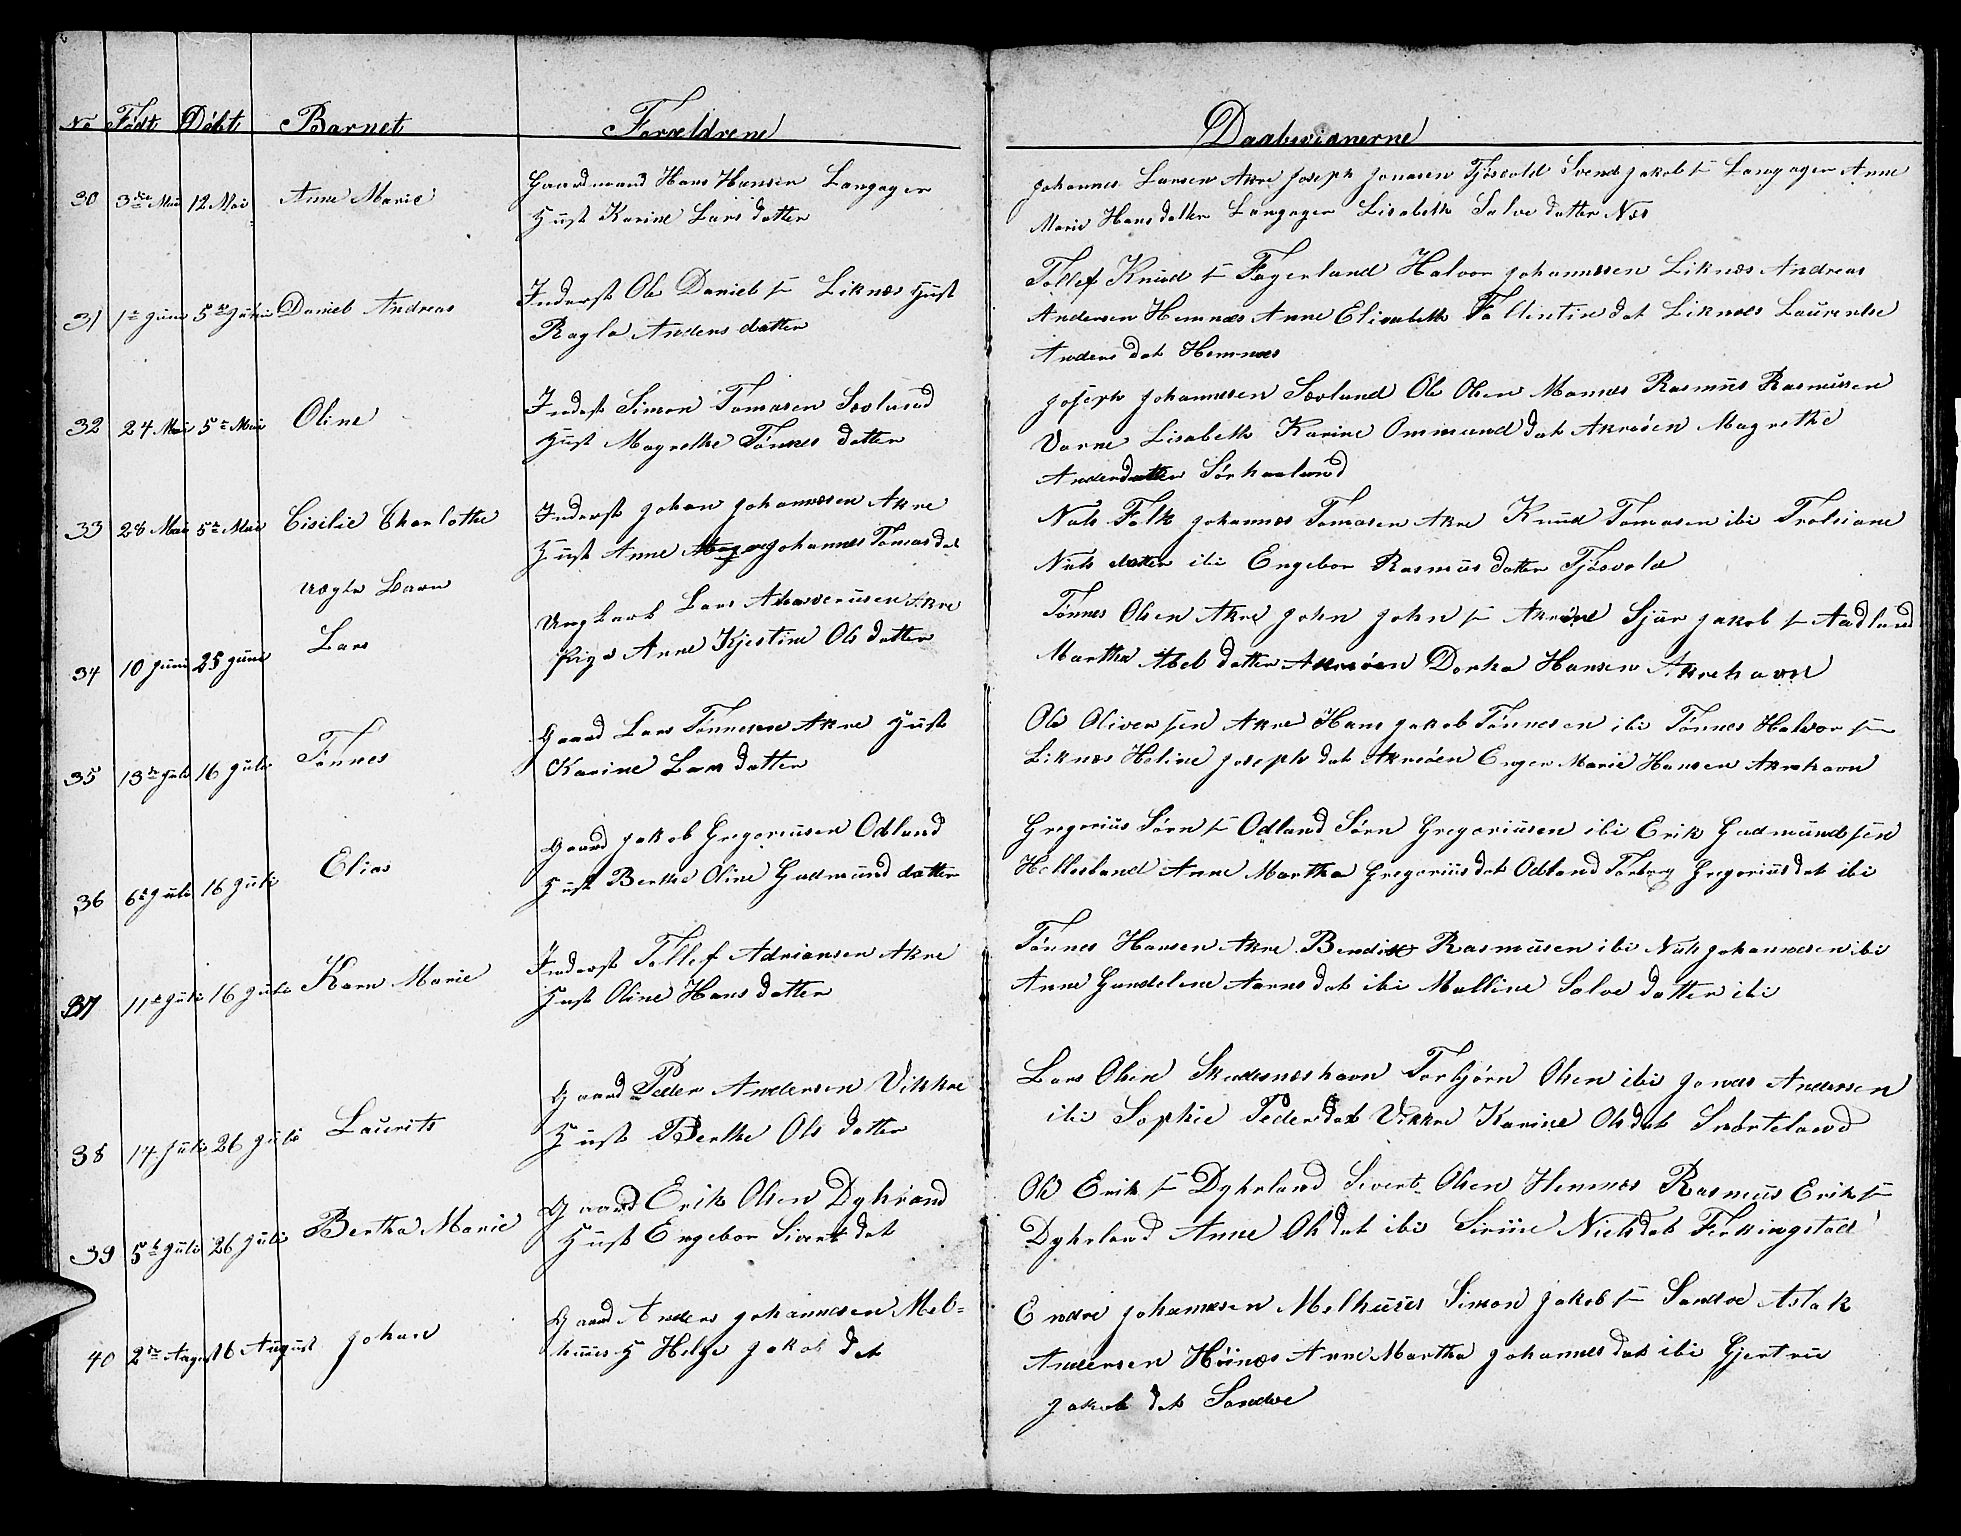 No Födt Döbt Barnet Forældrene Daabvidnerne
30 3die Mai 12 Mai Anne Marie Gaardmand Hans Hansen Langager
Hust Karine Larsdatter
Johannes Larsen Akre Joseph Jonasen Tjösvold Svend Jakobs Langager Anne
Marie Hansdatter Langager Lisabeth Salvedatter Nes
31 1te Juni 5te Juli Daniel Andreas Inderst Ole Daniels Liknes Hust
Ragla Andersdatter
Tollef Knuds Fagerland Halvor Johannesen Liknes Andreas
Andersen Hemnes Anne Elisabeth Fallentindat Liknes Laurentse
Andersdat Hemnes
32 24 Mai 5te Mai Oline Inderst Simon Tomasen Sevland
Hust Magrethe Tönnesdatter
Joseph Johannesen Sevland Ole Olsen Mannes Rasmus Rasmussen
Varne Lisabeth Karine Ommunddat Akreöen Magrethe
Andersdatter Sörhaaland
33 28 Mai 5te Mai Cisilie Charlothe Inderst Johan Johannesen Akre
Hust Anne Johannes Tomasdat
Nils Falk Johannes Tomasen Akre Knud Tomasen ibi
Nilsdatter ibi Engebor Rasmusdatter Tjösvold
uægte Barn
34 10 Juni 25 Juni Lars Ungkarl Lars Akre
Pige Anne Kjestine Olsdatter
Tönnes Olsen Akre John Johns Akreöen Sjur Jakobs Aadland
Martha Abeldatter Akreöen Dorha Hansen Akrehavn
35 13de Juli 16 Juli Tönnes Gaard Lars Tönnesen Akre Hust
Karine Larsdatter
Ole Oliversen Akre Hans Jakob Tönnesen ibi Tönnes Halvors
Liknes Heline Josephdat Akreöen Enger Marie Hansen Akrehavn
36 6te Juli 16 Juli Elias Gaard Jakob Gregoriusen Odland
Hust Berthe Oline Gudmunddatter
Gregorius Sörns Odland Sörn Gregoriusen ibi Erik Gudmundsen
Hellesland Anne Martha Gregoriusdat Odland Torborg Gregoriusdat ibi
37 11te Juli 16 Juli Karn Marie Inderst Tollef Adriansen Akre
Hust Oline Hansdatter
Tönnes Hansen Akre Bendix Rasmusen ibi Nils Johannesen ibi
Anne Gundeline Aarnsdat ibi Malline Salvedatter ibi
38 14 Juli 26 Juli Laurits Gaard Peder Andersen Vikkre
Hust Berthe Olsdatter
Lars Olsen Skudesneshavn Torbjörn Olsen ibi Jonas Andersen
ibi Sophie Pedersdat Vikkre Karine Olsdat Snörteland
39 5te Juli 26 Juli Bertha Marie Gaard Erik Olsen Dyhrland
Hust Engebor Sivertdat
Ole Eriks Dyhrland Sivert Olsen Hemnes Rasmus Eriks
Dyhrland Anne Olsdat ibi Sirine Nielsdat Ferkingstad
40 2te August 16 August Johan Gaard Anders Johannesen Mel-
huus H Helge Jakobdat
Endre Johannesen Melhuus Simon Jakobs Sandve Aslak
Andersen Höines Anne Martha Johannesdat ibi Gjertrue
Jakobdat Sandve